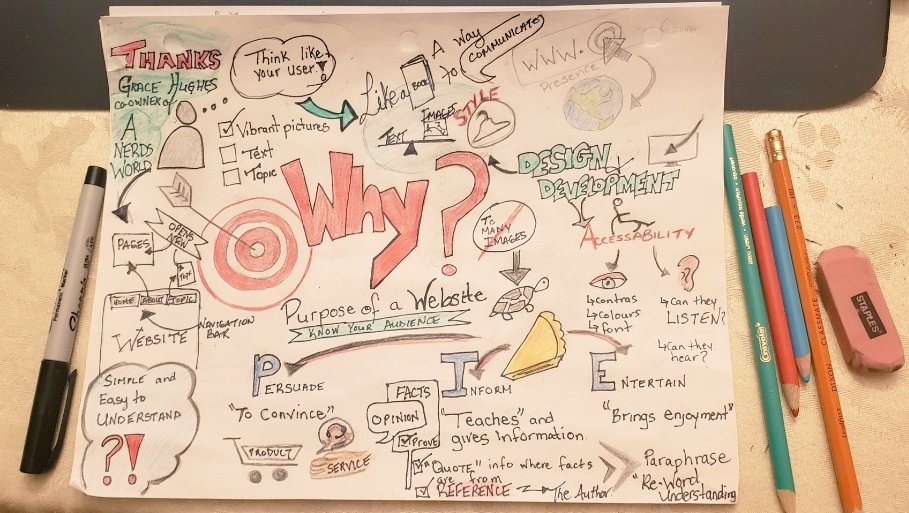 THANKS
GRACE HUGHES
CO-OWNER of
A
NERDS
WORLD
Think like
your user!
Vibrant pictures
Text
Topic
Like a
BOOK
A Way
to
COMMUNICATE
TEXT
IMAGES
STYLE
WWW.
Presence
Why?
DESIGN
DEVELOPMENT
TO
MANY
IMAGES
ACCESSABILITY
contras
colours
font
can they
LISTEN?
can they
hear?
PAGES
OPENS
NEW
TEXT
HOME ABOUT TOPIC
WEBSITE
NAVIGATION
BAR
Purpose of a Website
KNOW YOUR AUDIENCE
SIMPLE and
Easy to
UNDERSTAND
?!
PERSUADE
"To CONVINCE"
PRODUCT
SERVICE
FACTS
OPINION
PROVE
INFORM
"Teaches" and
gives information.
"QUOTE" info where facts
are from
REFERENCE
The Author
ENTERTAIN
"Brings enjoyment"
Paraphrase
"Re-Word
Understanding
Crayola
STAPLES
CLASSMATE
DIXON